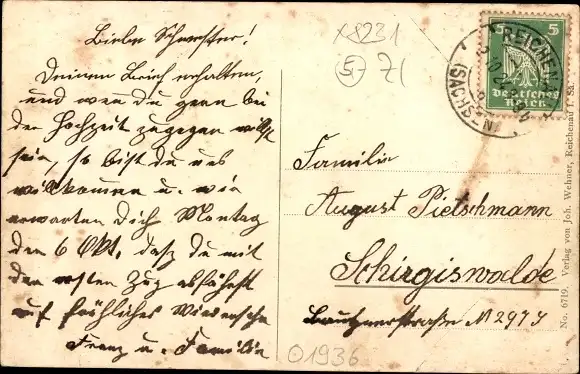 Liebe Schwester!
Deinen Brief erhalten,
und wenn du gern bei
der Hochzeit zugegen willst
sein, so bist du uns
willkommen u. wir
erwarten Dich Montag
den 6 Okt. daß du mit
den ersten Zug abfährst
auf fröhliches Wiedersehn
Franz u. Familie
x8231
57
Z1
5 5
Deutsches
Reich
REICHENAU
(SACHS
Familie
August Pietschmann
Schirgiswalde
Bautznerstraße M 297 J
01936
No. 6719. Verlag von Joh. Wehner, Reichenau i. Sa.